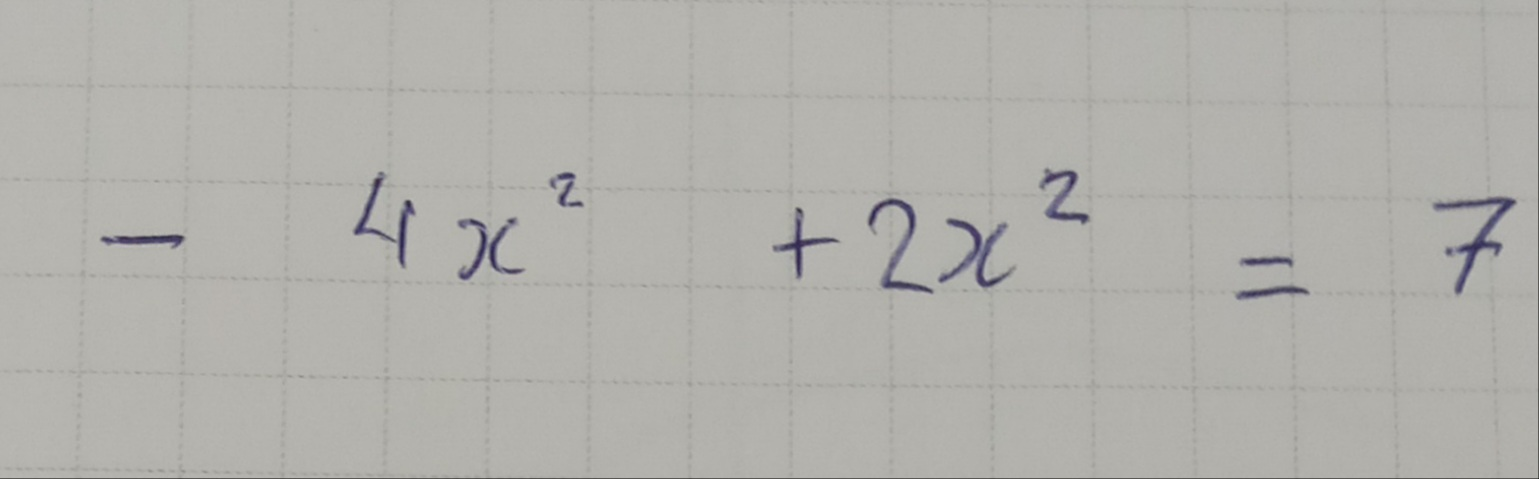 - 4x² + 2x² = 7